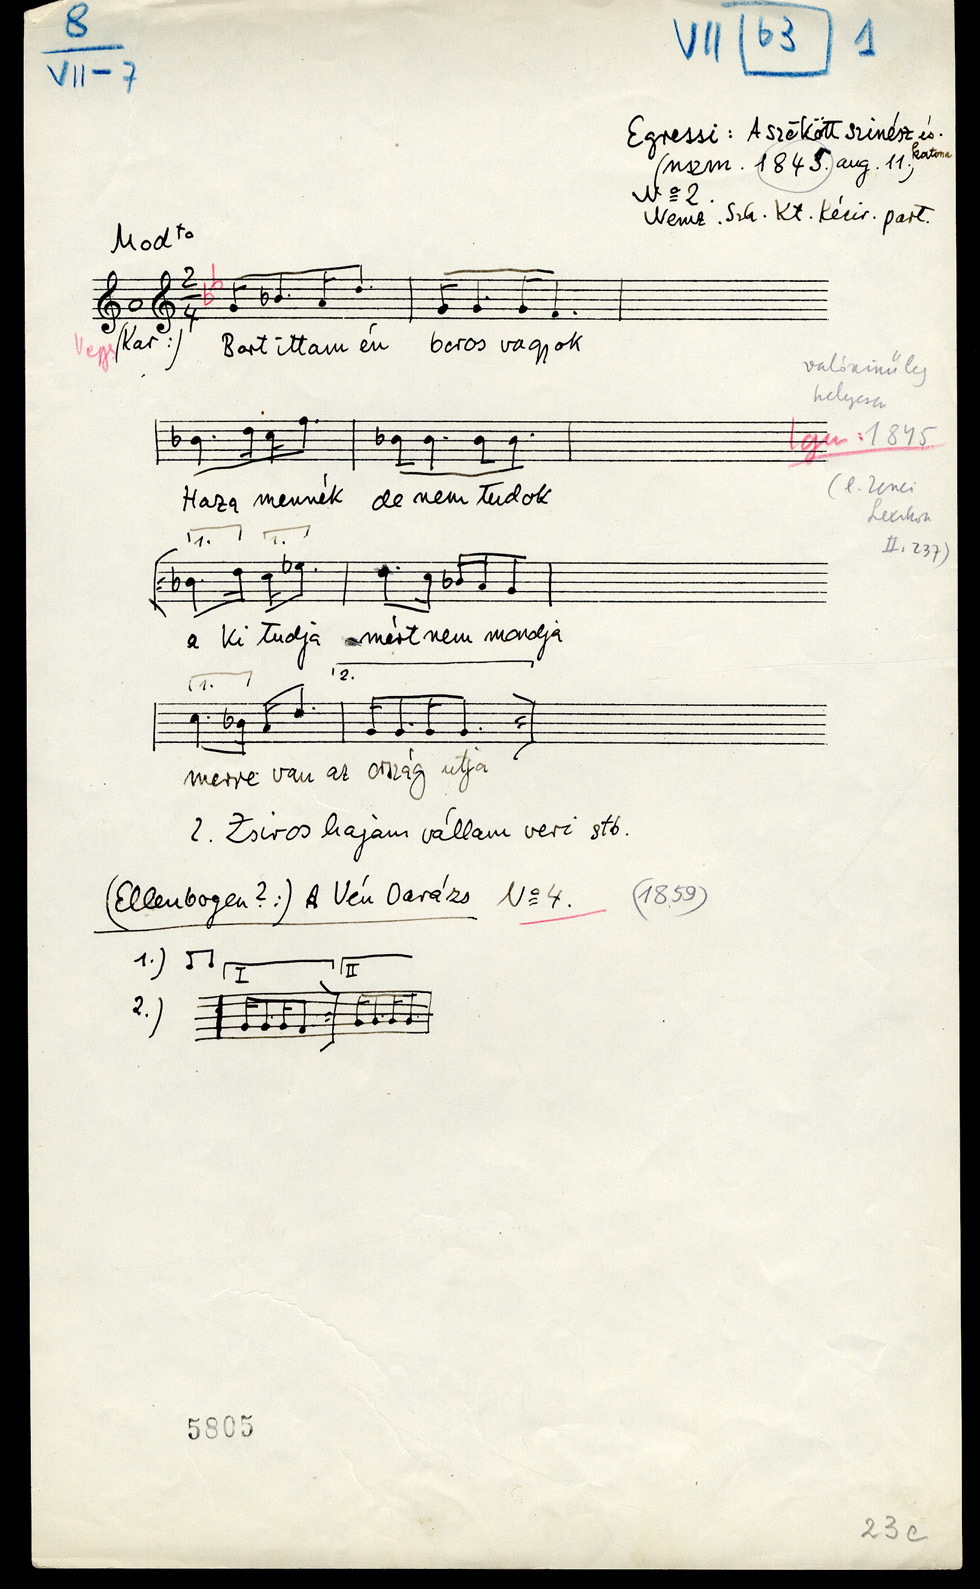 8
VII-7
VII 63 1
Egressi: A szökött szinész és
katona
(nszm. 1845. aug. 11;
No 2.
Nemz. Szh. Kt. kézir. part.
Modto
2
4
Vegy (Kar:) Bort ittam én boros vagyok
valószinűleg
helyesen
Igen: 1845
(l. Zenei
Lexikon
II. 237)
Haza mennék de nem tudok
1. 1.
a ki tudja mért nem mondja
1. 2.
merre van az ország utja
2. Zsiros hajam vállam veri stb.
(Ellenbogen?:) A Vén Darázs No 4. (1859)
1.) I II
2.)
5805
23c